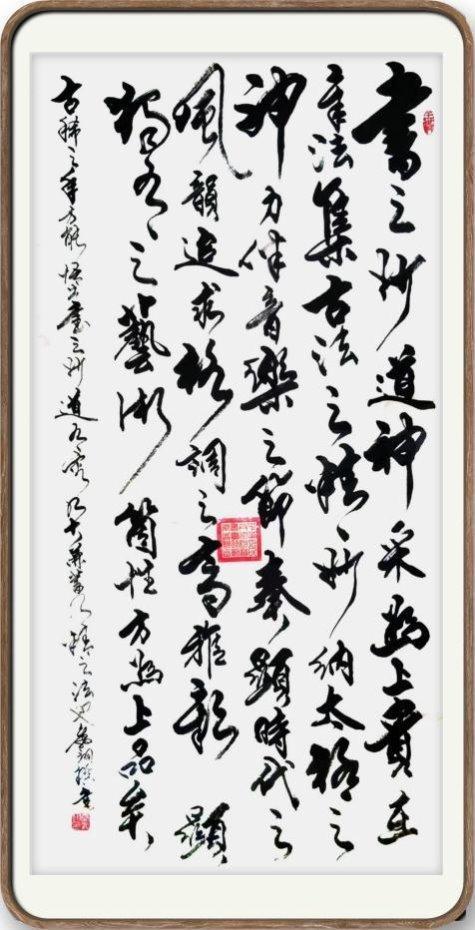 書之妙道神采為上貴在
章法集古法之精妙納太極之
神力伴音樂之節奏顯時代之
風韻追求格調之高雅彰顯
獨有之藝術箇性方為上品矣
古稀之年方能悟出書之妙道